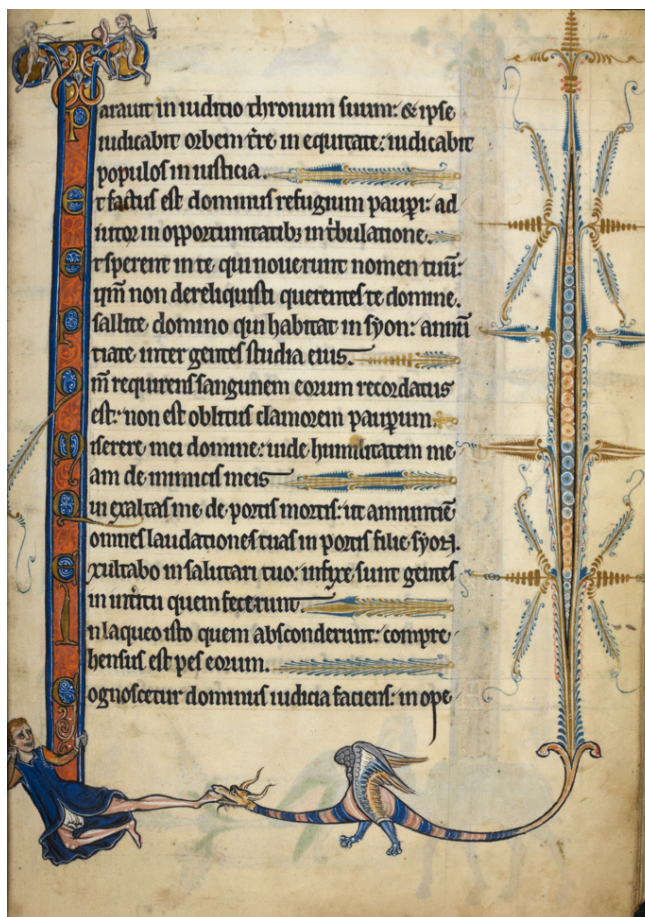 Parauit in iuditio thronum suum: & ipse
iudicabit orbem t̄re in equitate: iudicabit
populos in iusticia.
Et factus est dominus refugium paup̲i: ad
iutor in opportunitatibꝫ in t̄bulatione.
Et sperent in te qui nouerunt nomen tuū:
qm̄ non dereliquisti querentes te domine.
Psallite domino qui habitat in syon: annū
tiate inter gentes studia eius.
Qm̄ requirens sanguinem eorum recordatus
est: non est oblitus clamorem paup̲um.
Miserere mei domine: uide humilitatem me
am de inimicis meis
Qui exaltas me de portis mortis: ut annuntiē
omnes laudationes tuas in portis filie syon.
Exultabo in salutari tuo: infixe sunt gentes
in int̄itu quem fecerunt.
In laqueo isto quem absconderunt: compre
hensus est pes eorum.
Cognoscetur dominus iudicia faciens: in ope